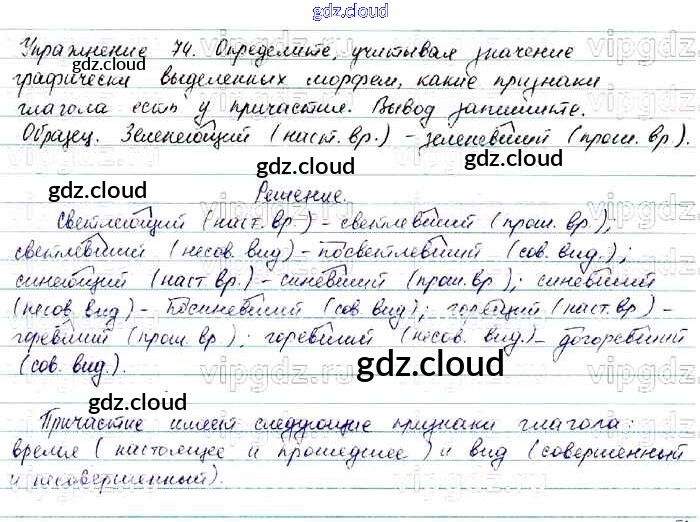 gdz.cloud
Упражнение 74. Определите, учитывая значение
графически выделенных морфем, какие признаки
глагола есть у причастия. Вывод запишите.
Образец. Зеленеющий (наст. вр.) – зеленевший (прош. вр.).
Решение.
Светлеющий (наст. вр.) – светлевший (прош. вр.);
светлевший (несов. вид) – посветлевший (сов. вид.);
синеющий (наст вр.) – синевший (прош. вр); синевший
(несов. вид) – посиневший (сов. вид); горящий (наст. вр) –
горевший (прош. вр); горевший (несов. вид) – догоревший
(сов. вид.).
Причастие имеет следующие признаки глагола:
время (настоящее и прошедшее) и вид (совершенный
и несовершенный).